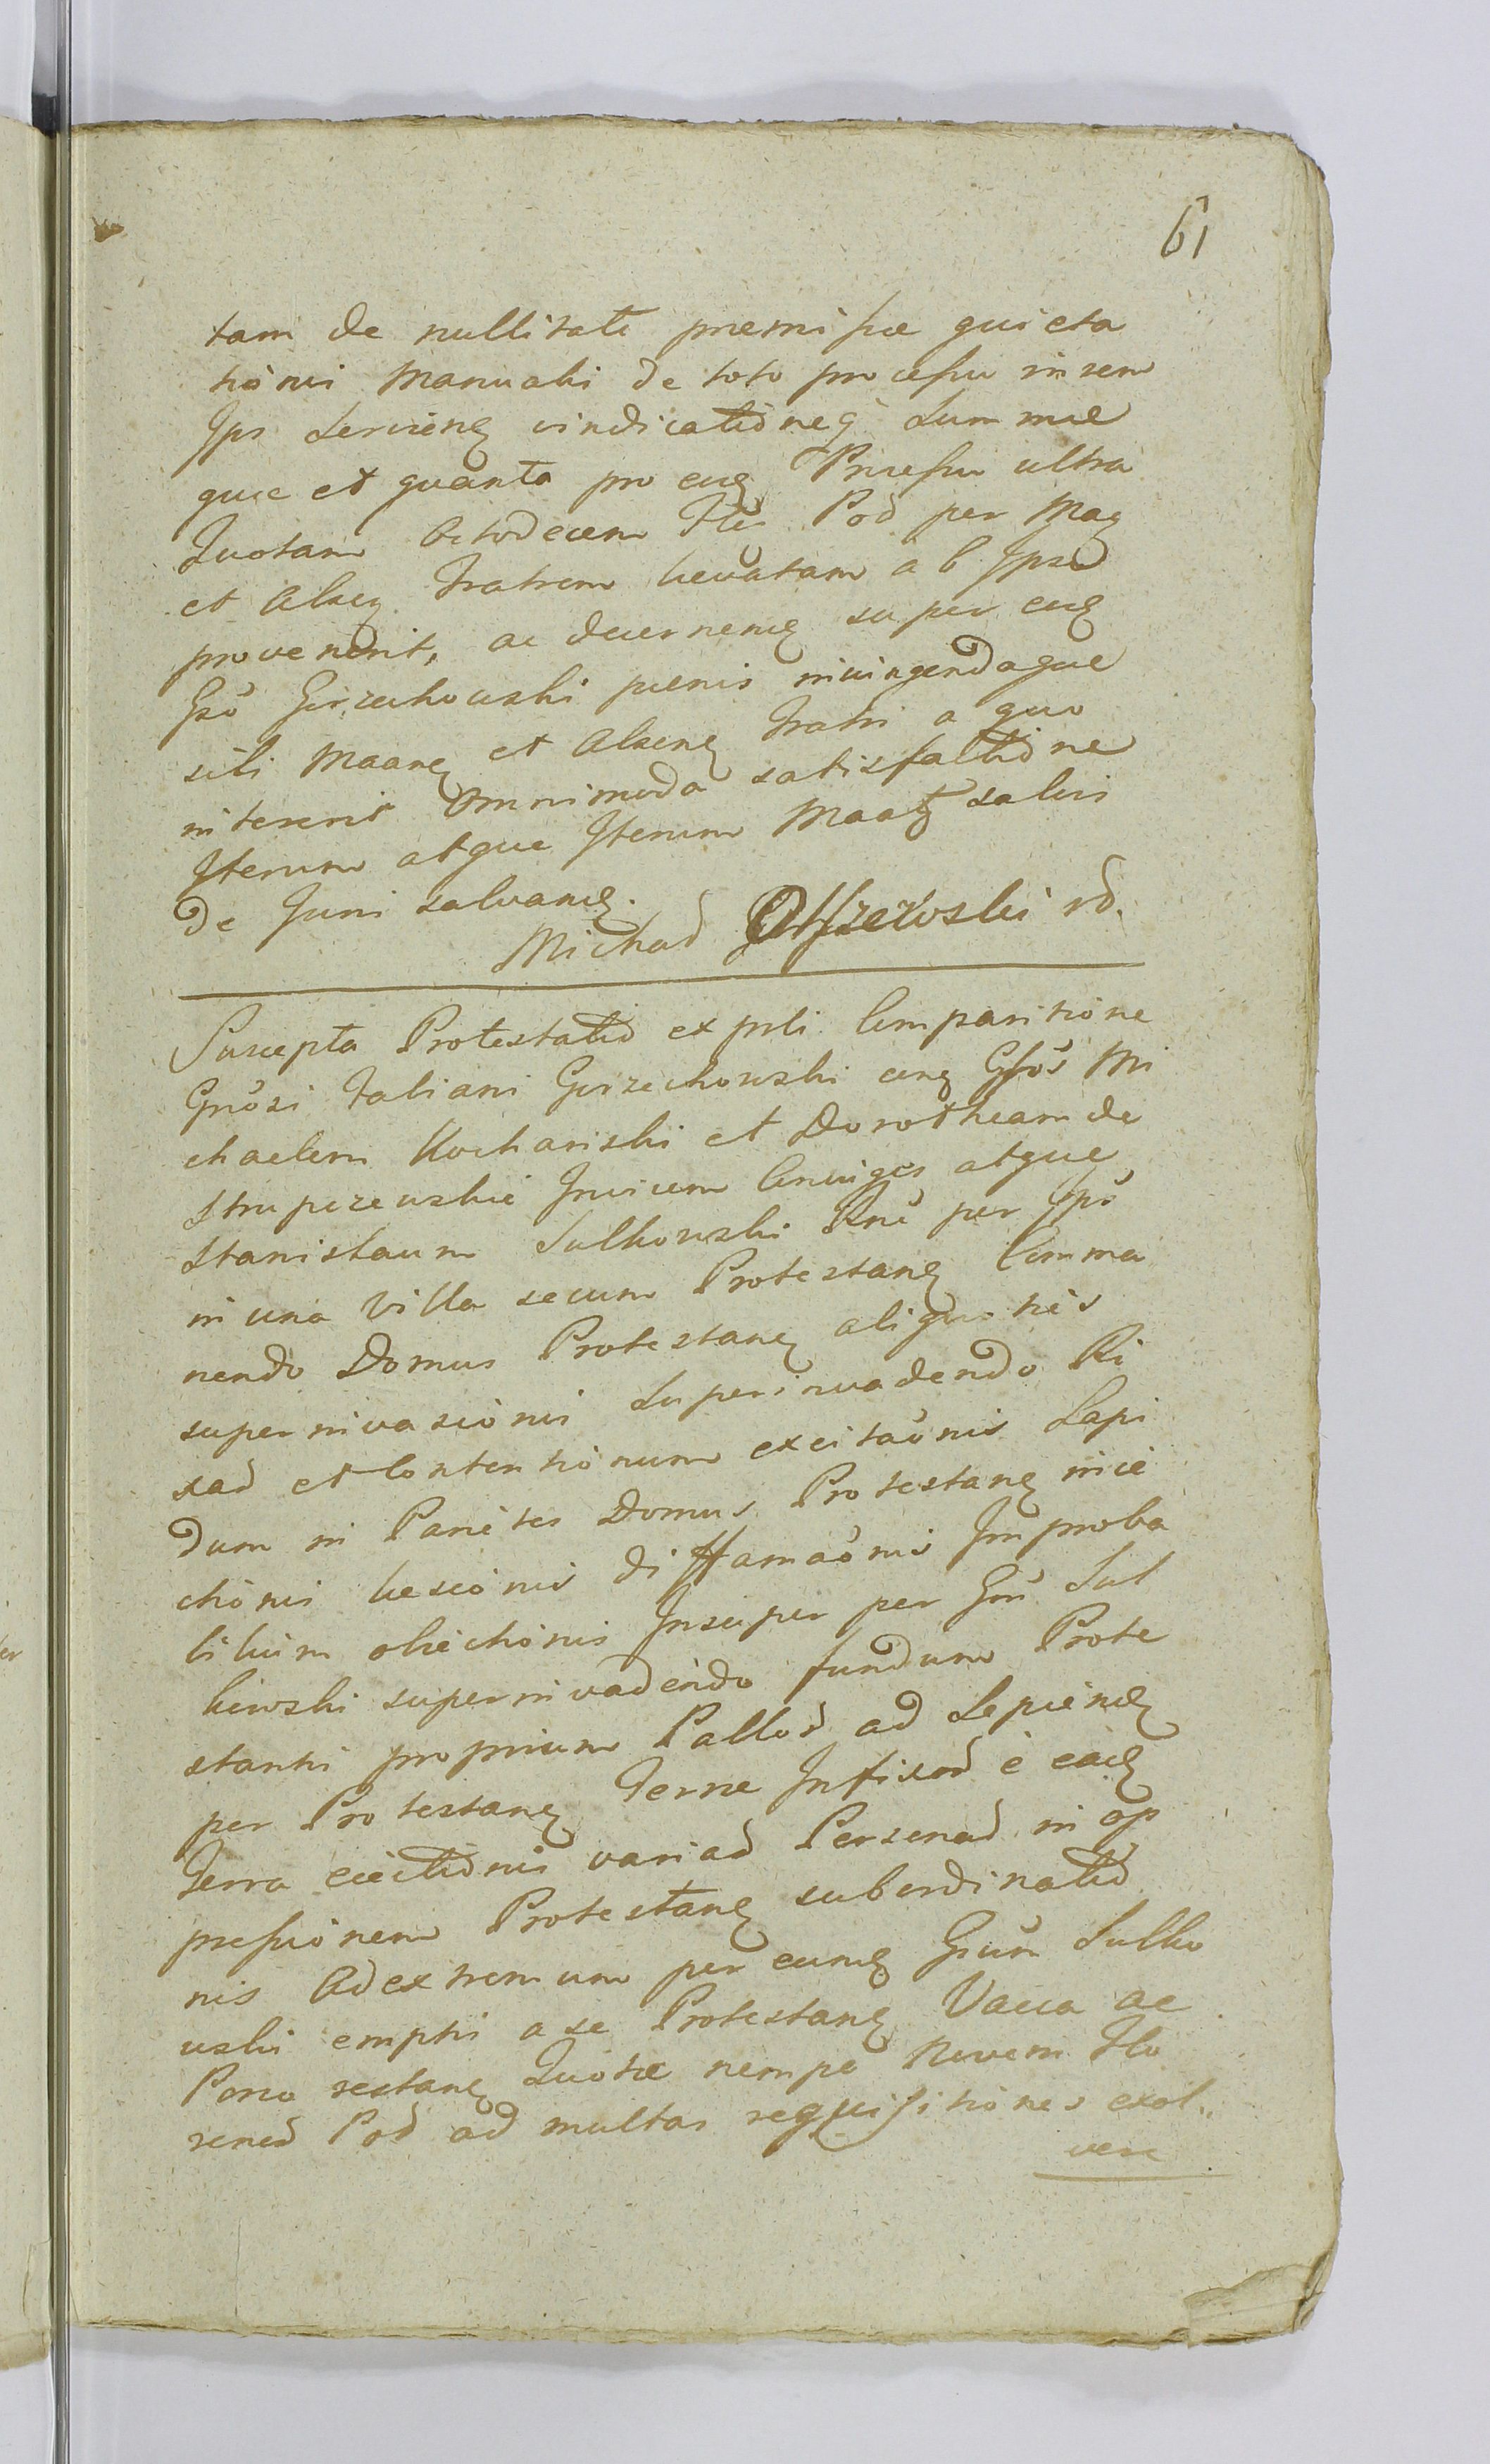 61
tam de nullitate præmissæ quieta
tionis Manualis de toto processu in rem
Ips Servieng vindicationeq Summæ
quæ et quanta pro eug Processu ultra
Quotam Octodecem Flč Pol per Mag
et Alseg fratrem levatam ab Ipso
provenerit, ac decerneng super eug
Gsō Grzechowski pœnis iniungendaque
sibi Maang et Alseng fratri a quo
intererit Omnimoda satisfactione
Iterum atque Iterum Maatg salvi
de Juri salvang.
Michael Olszewski rd.
Suscepta Protestatio ex prli Comparitione
Gnōsi Fabiani Grzechowski cong Gsōs Mi
chaelem Kochański et Dorotheam de
Strupczewskie Invicem Coniuges atque
Stanislaum Sulkowski Rnē per Ipsō
in una Villa secum Protestang Comma
nendo Domus Protestang aliquoties
superinvasionis Superinvadendo Ri
xad et Contentionum excitaōnis Lapi
dum in Parietes Domus Protestang inie
ctionis læsionis diffamaōnis Improba
bilium obiectionis Insuper per Gsū Sul
kowski superinvadendo fundum Prote
stanti proprium Pallod ad Sepieng
per Protestang Terræ Infixod è eadg
Terra eiectionis variad Personad in op
pressionem Protestang subordinatio
nis Ad extremum per eumg Gsūm Sulko
wski empti a se Protestang Vacca ac
Porco restang Quotæ nempe Novem Flo
rened Pol ad multas requisitiones exol„
vere